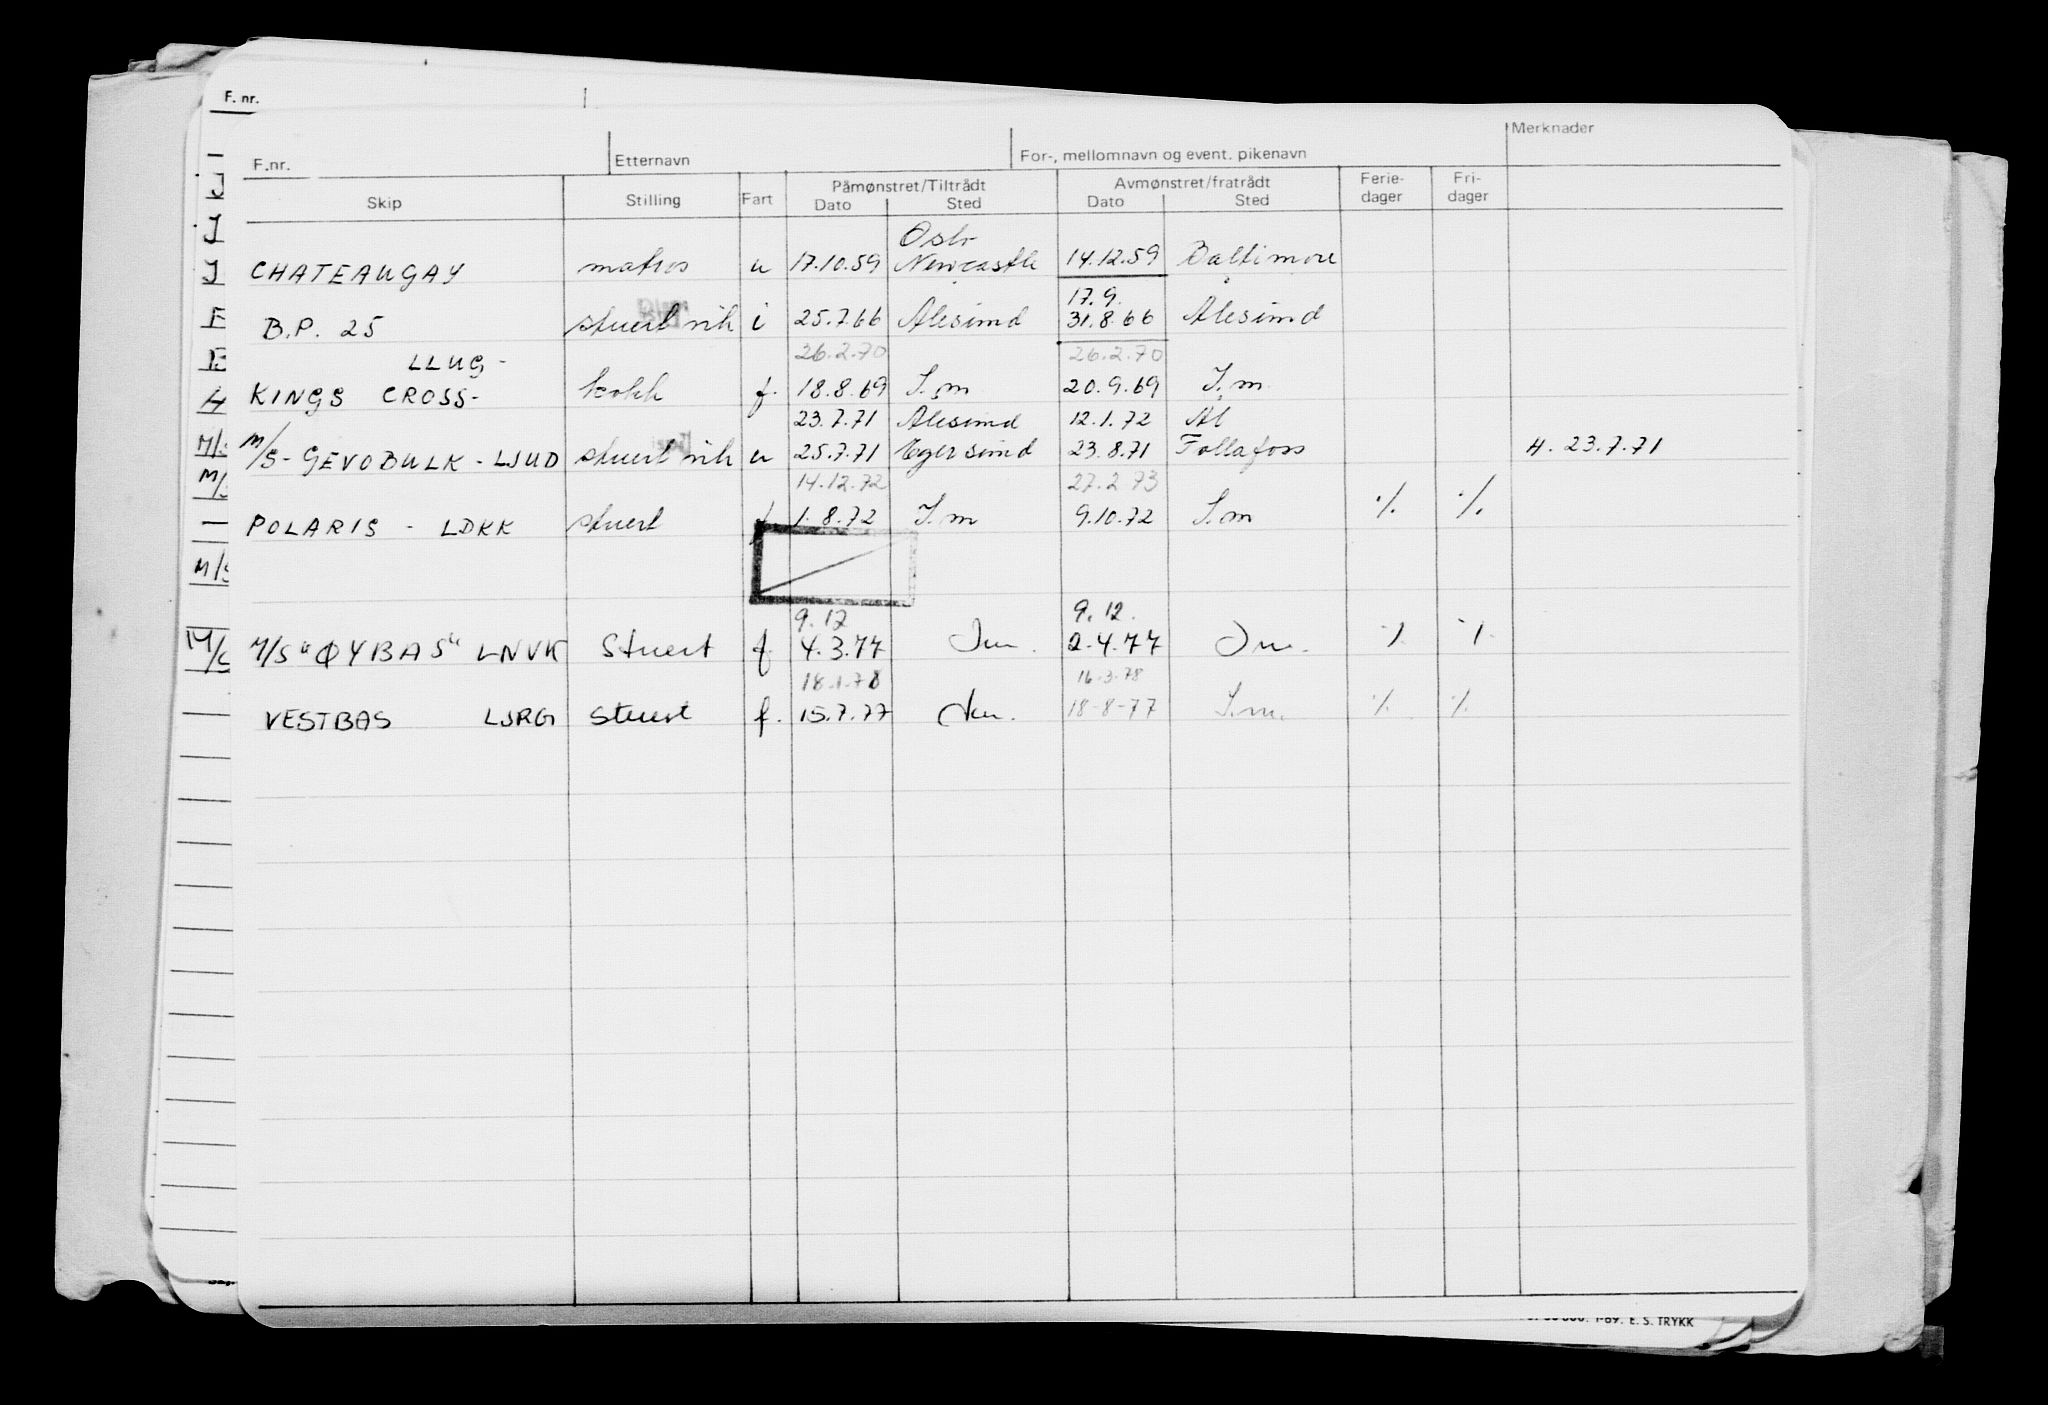 F. nr.
F.nr. Etternavn For-, mellomnavn og event. pikenavn Merknader
Skip Stilling Fart Påmønstret/Tiltrådt Avmønstret/fratrådt Ferie-dager Fri-dager
Dato Sted Dato Sted
Oslo
CHATEAUGAY matros u 17.10.59 Newcastle 14.12.59 Baltimore
17.9.
B.P. 25 stuert vik i 25.7.66 Ålesund 31.8.66 Ålesund
LLUG - 26.2.70 26.2.70
KINGS CROSS- kokk f. 18.8.69 I.m 20.9.69 I.m
23.7.71 Ålesund 12.1.72 Ål
M/S- GEVOBULK - LJUD stuert vik u 25.7.71 Egersund 23.8.71 Follafoss H. 23.7.71
14.12.72 27.2.73
POLARIS - LDKK stuert f 1.8.72 I.m 9.10.72 I.m % %
9.12 9.12.
M/S "ØYBAS" LNVK Stuert f. 4.3.77 Im. 2.4.77 Im. % %
18.1.78 16.3.78
VESTBAS LJRG Stuert f. 15.7.77 Im. 18-8-77 I.m. % %
1-69. E. S. TRYKK